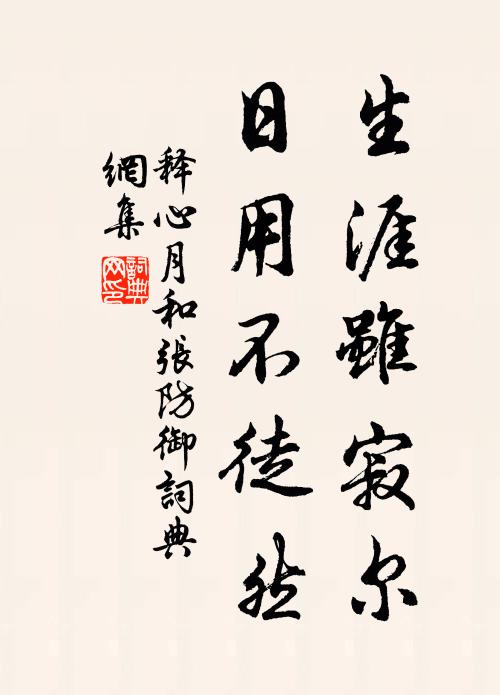 生涯雖寂尔
日用不徒然
释心月和張防御詞典
網集
詞典網印